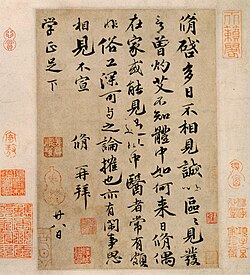 脩啓多日不相見誠以區區見發
言曾灼艾不知體中如何來日脩偶
在家或能見過此中醫者常有頗
非俗工深可與之論榷也亦有閑事思
相見不宣 脩再拜
廿八日
學正足下